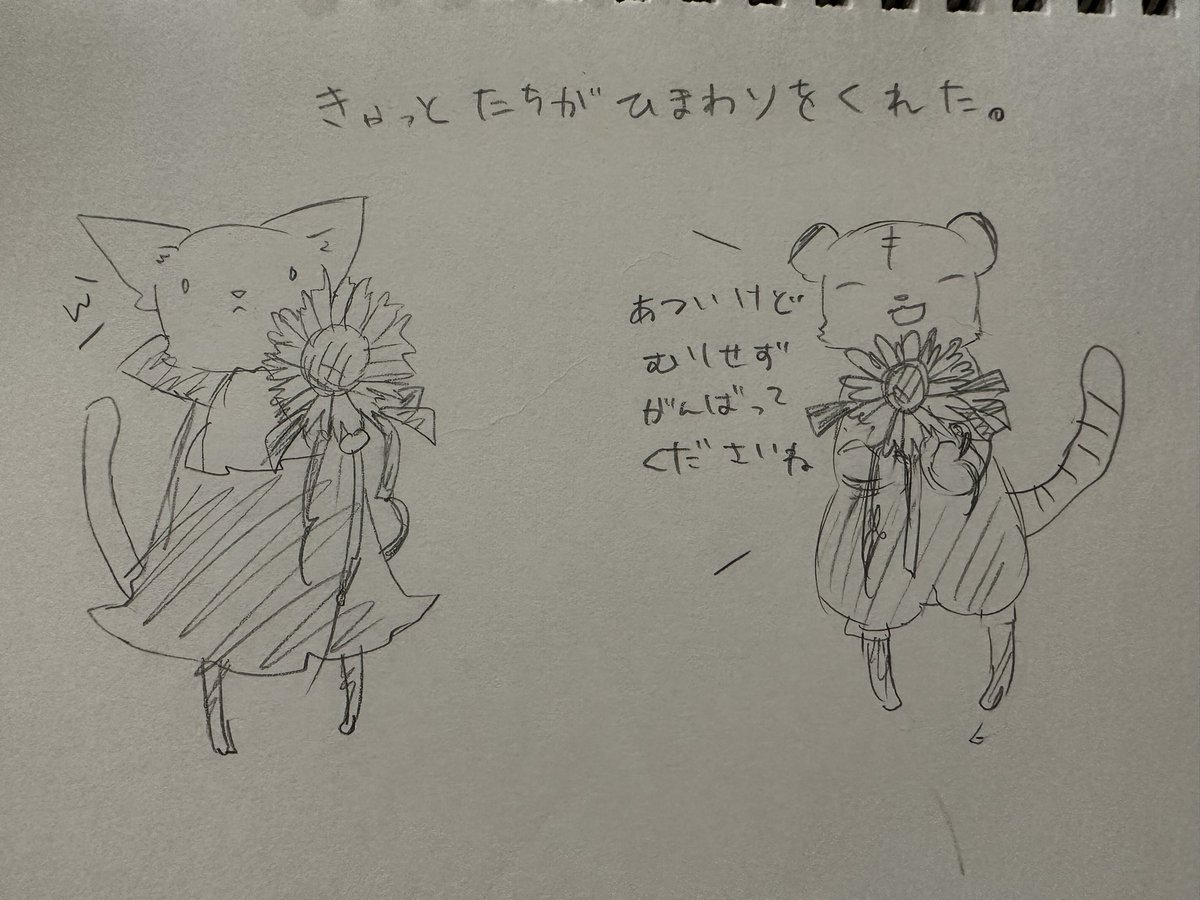 きょっとたちがひまわりをくれた。
あついけど
むりせず
がんばって
くださいね